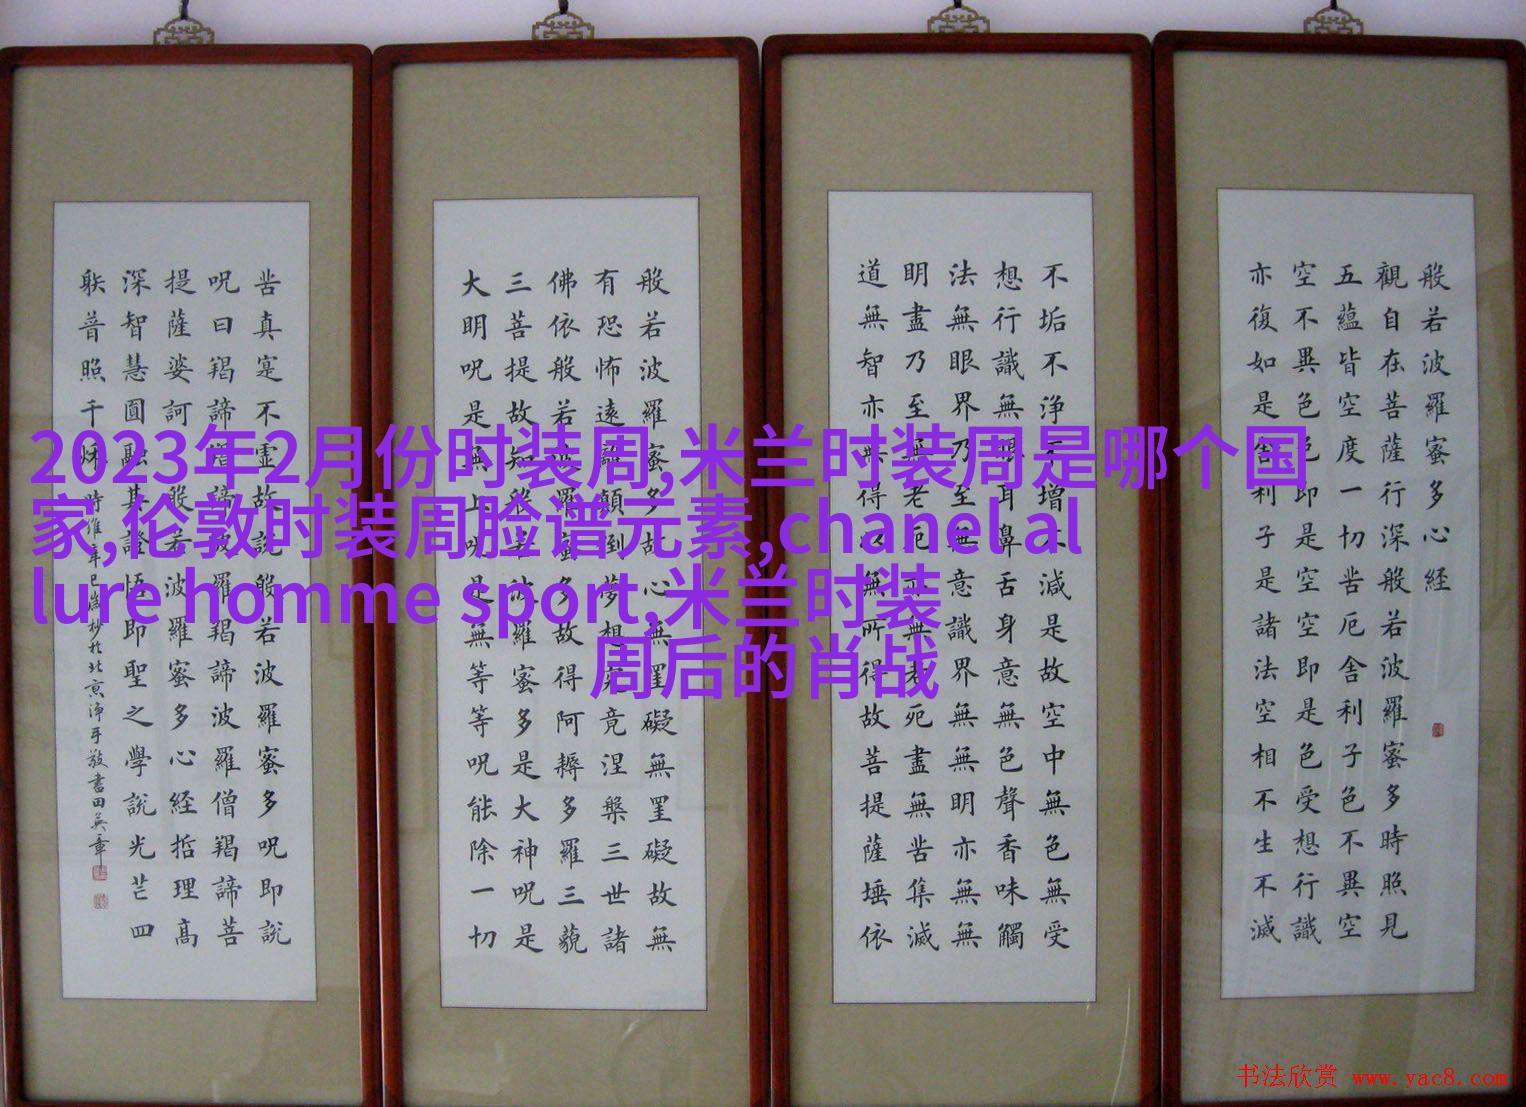 2023年2月份时装周,米兰时装周是哪个国
家,伦敦时装周脸谱元素,chanel al
lure homme sport,米兰时装
周后的肖战
般若波羅蜜多心経
觀自在菩薩行深般若波羅蜜多時照見
五蘊皆空度一切苦厄舍利子色不異空
空不異色色即是空空即是色受想行識
亦復如是舍利子是諸法空相不生不滅
不垢不浄不增不減是故空中無色無受
想行識無眼耳鼻舌身意無色聲香味觸
法無眼界乃至無意識界無無明亦無無
明盡乃至無老死亦無老死盡無苦集滅
道無智亦無得以無所得故菩提薩埵依
般若波羅蜜多故心無罣礙無罣礙故無
有恐怖遠離顛倒夢想究竟涅槃三世諸
佛依般若波羅蜜多故得阿耨多羅三藐
三菩提故知般若波羅蜜多是大神呪是
大明呪是無上呪是無等等呪能除一切
苦真寔不虛故説般若波羅蜜多呪即説
呪曰羯諦羯諦波羅羯諦波羅僧羯諦菩
提薩婆訶 般若波羅蜜多心経哲理高
深智慧圓融其證悟即聖之學説光芒四
躲普照千秋 時維辛巳歲抄於北京淨手敬書田英章
书法欣赏 www.yac8.com